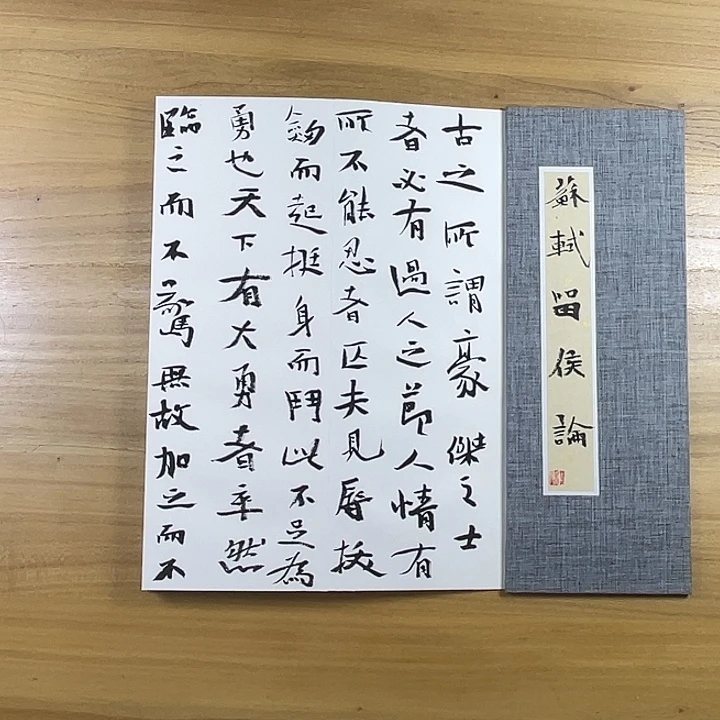 蘇軾留侯論
古之所謂豪傑之士
者必有過人之節人情有
所不能忍者匹夫見辱拔
劒而起挺身而鬥此不足為
勇也天下有大勇者卒然
臨之而不驚無故加之而不